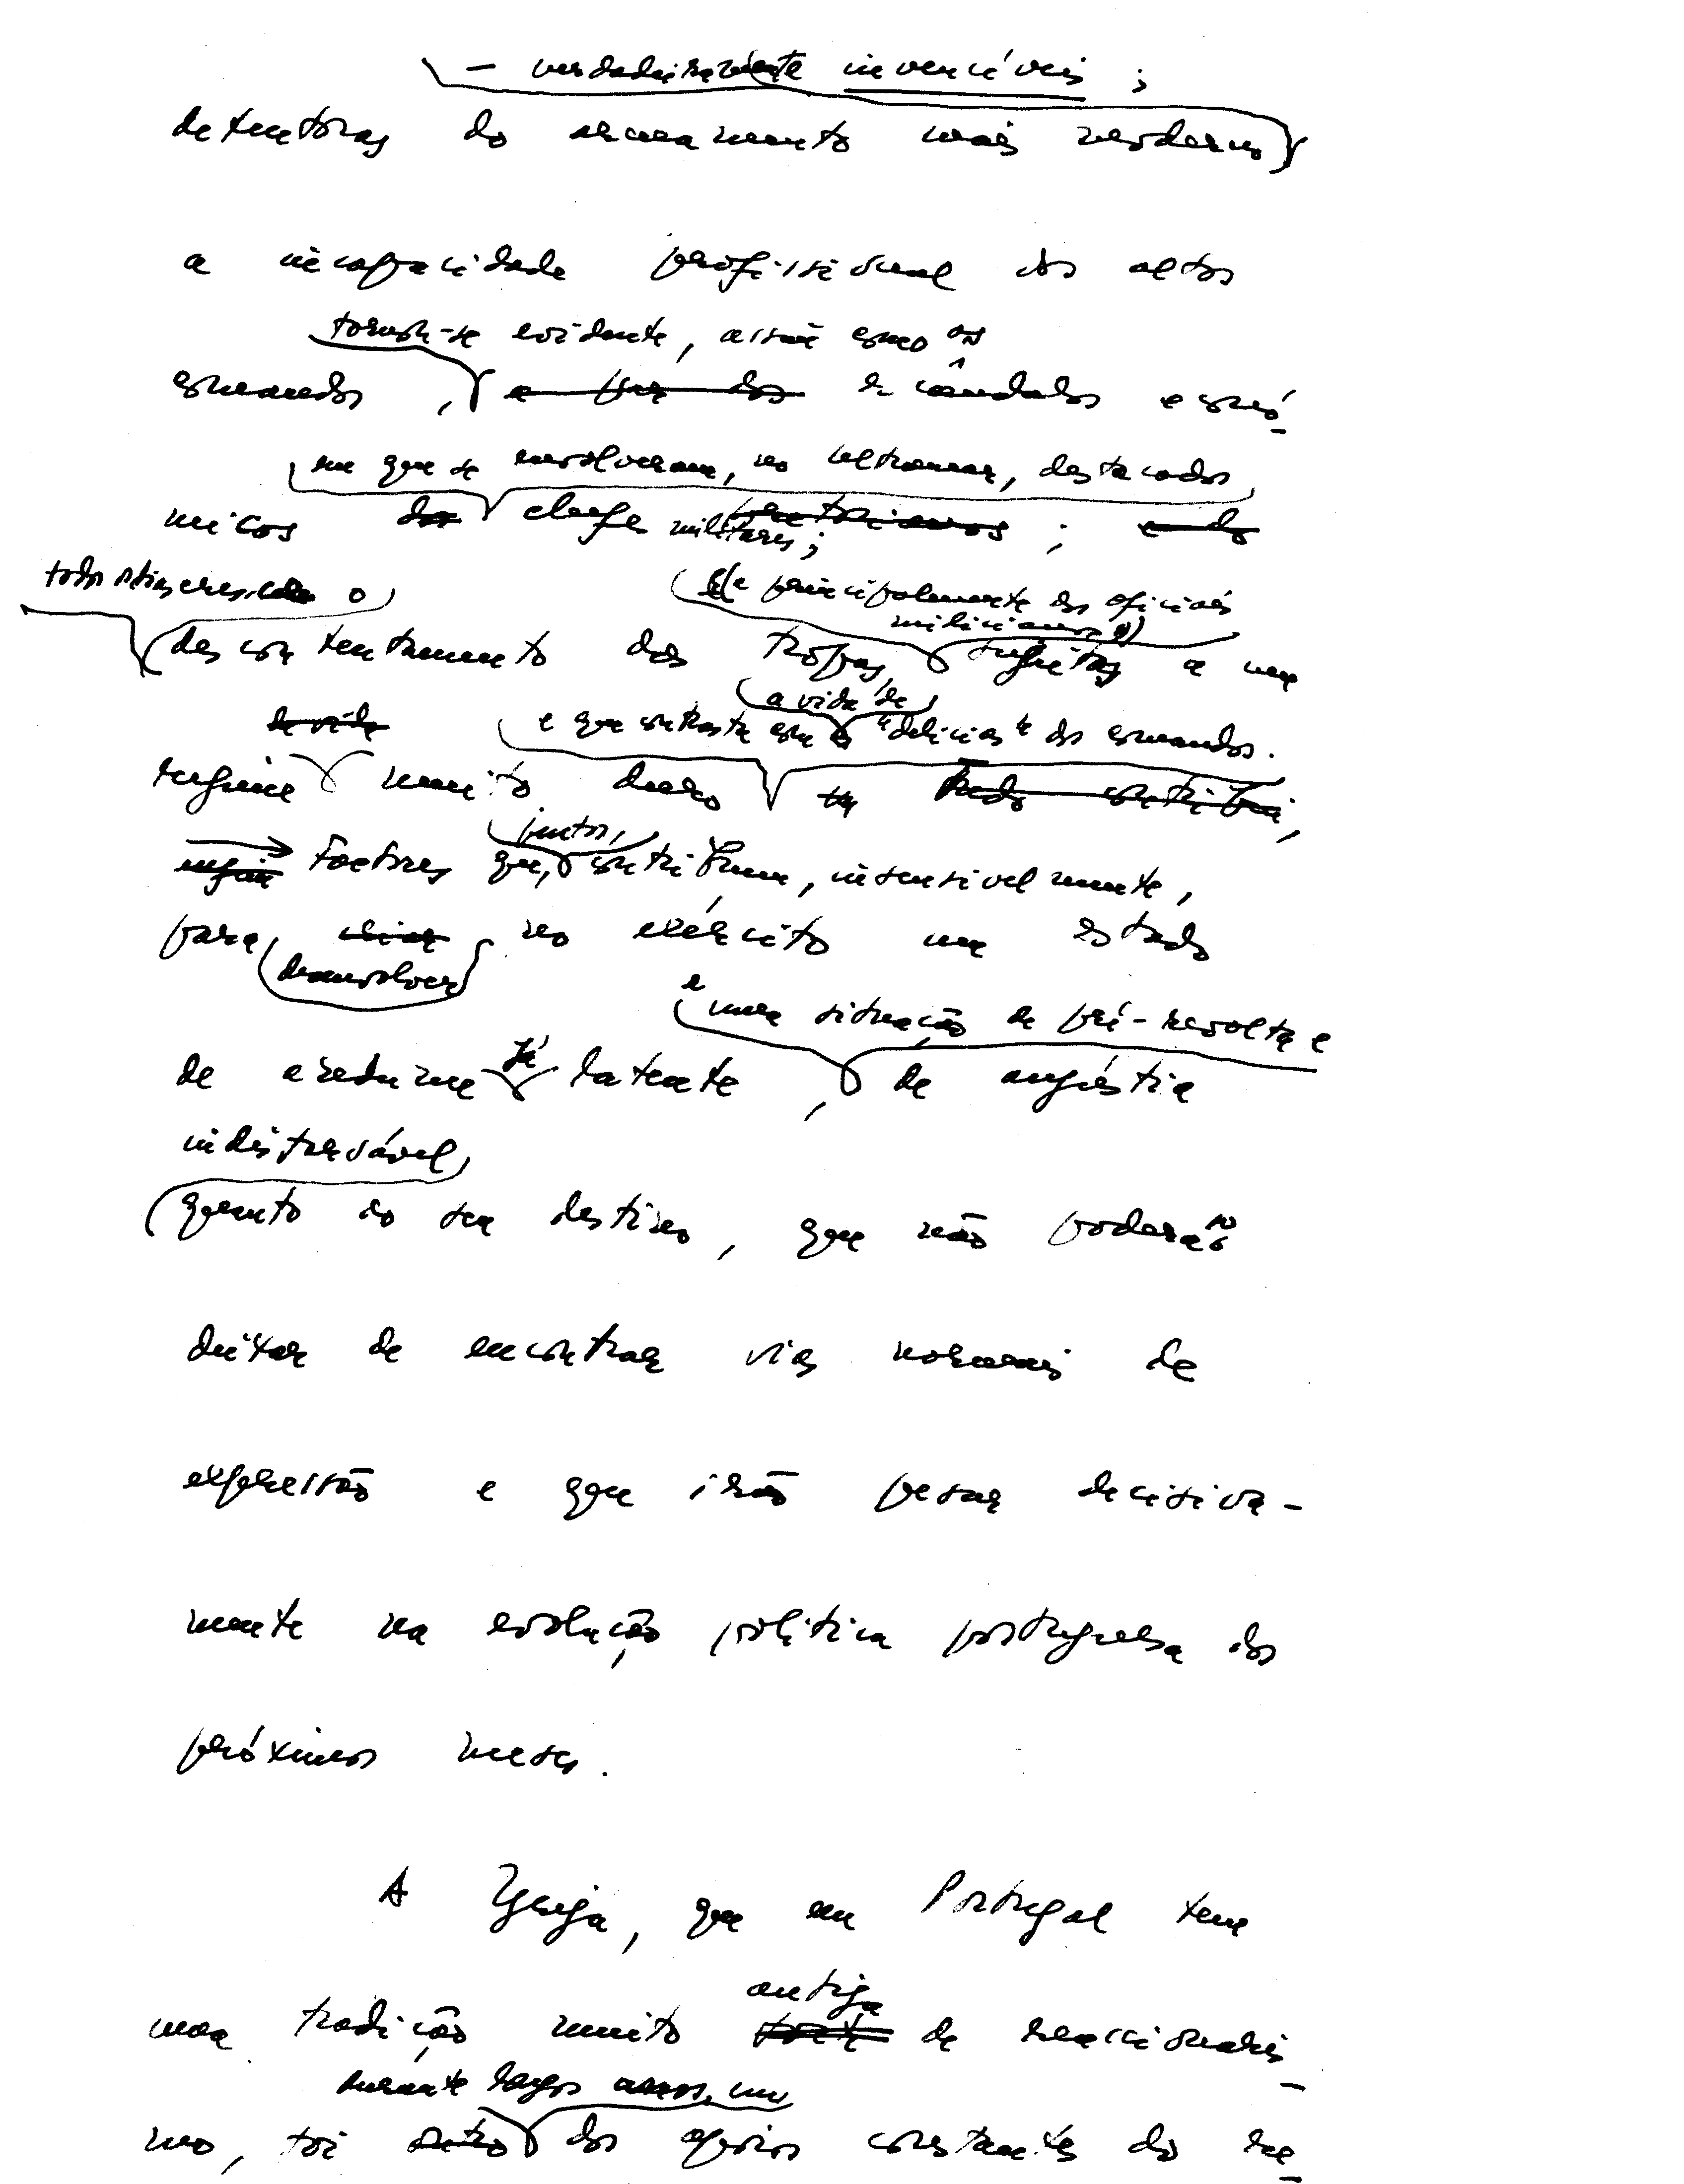 – verdadeiramente invencíveis ;
detentoras do armamento mais moderno
a incapacidade profissional dos altos
tornou-se evidente, assim como os
comandos , a par dos escândalos econó-
em que se envolveram, no ultramar, destacados
micos dos chefes militares; pretorianos ; e do
todos os dias cresce o
(e principalmente dos oficiais
milicianos)
descontentamento das tropas, sujeitas a um
a vida de
de vida e que contrasta com as "delícias" dos comandos.
regime muito duro Tudo contribui,
juntos,
factores que, contribuem, insensivelmente,
para criar no exército um estado
desenvolver
e uma situação de pré-revolta e
de azedume já latente , de angústia
indisfarçável,
quanto ao seu destino, que não poderão
deixar de encontrar vias normais de
expressão e que irão pesar decisiva-
mente na evolução política portuguesa dos
próximos meses.
A Igreja, que em Portugal tem
antiga
uma tradição muito forte de reaccionaris-
durante largos anos, um
mo, foi outro dos apoios constantes do re-